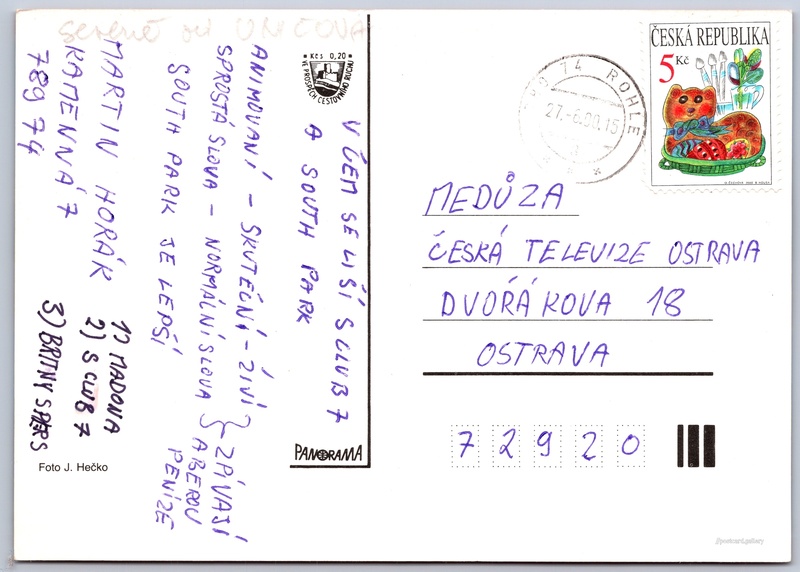 serene od UNIČOVA
MARTIN HORÁK
KAMENNÁ 7
789 74
V ČEM SE LIŠÍ S CLUB 7
A SOUTH PARK
ANIMOVANÍ – SKUTEČNÍ – ŽIVÍ
SPROSTÁ SLOVA – NORMÁLNÍ SLOVA
ZPÍVAJÍ
A BEROU
PENÍZE
SOUTH PARK JE LEPŠÍ
1) MADONA
2) S CLUB 7
3) BRITNY SPÍRS
Foto J. Hečko
Kčs 0,20
VE PROSPĚCH CESTOVNÍHO RUCHU
PANORAMA
74 ROHLE
27.-6.00.15
ČESKÁ REPUBLIKA
5 Kč
MEDŮZA
ČESKÁ TELEVIZE OSTRAVA
DVOŘÁKOVA 18
OSTRAVA
7 2 9 2 0
//postcard.gallery